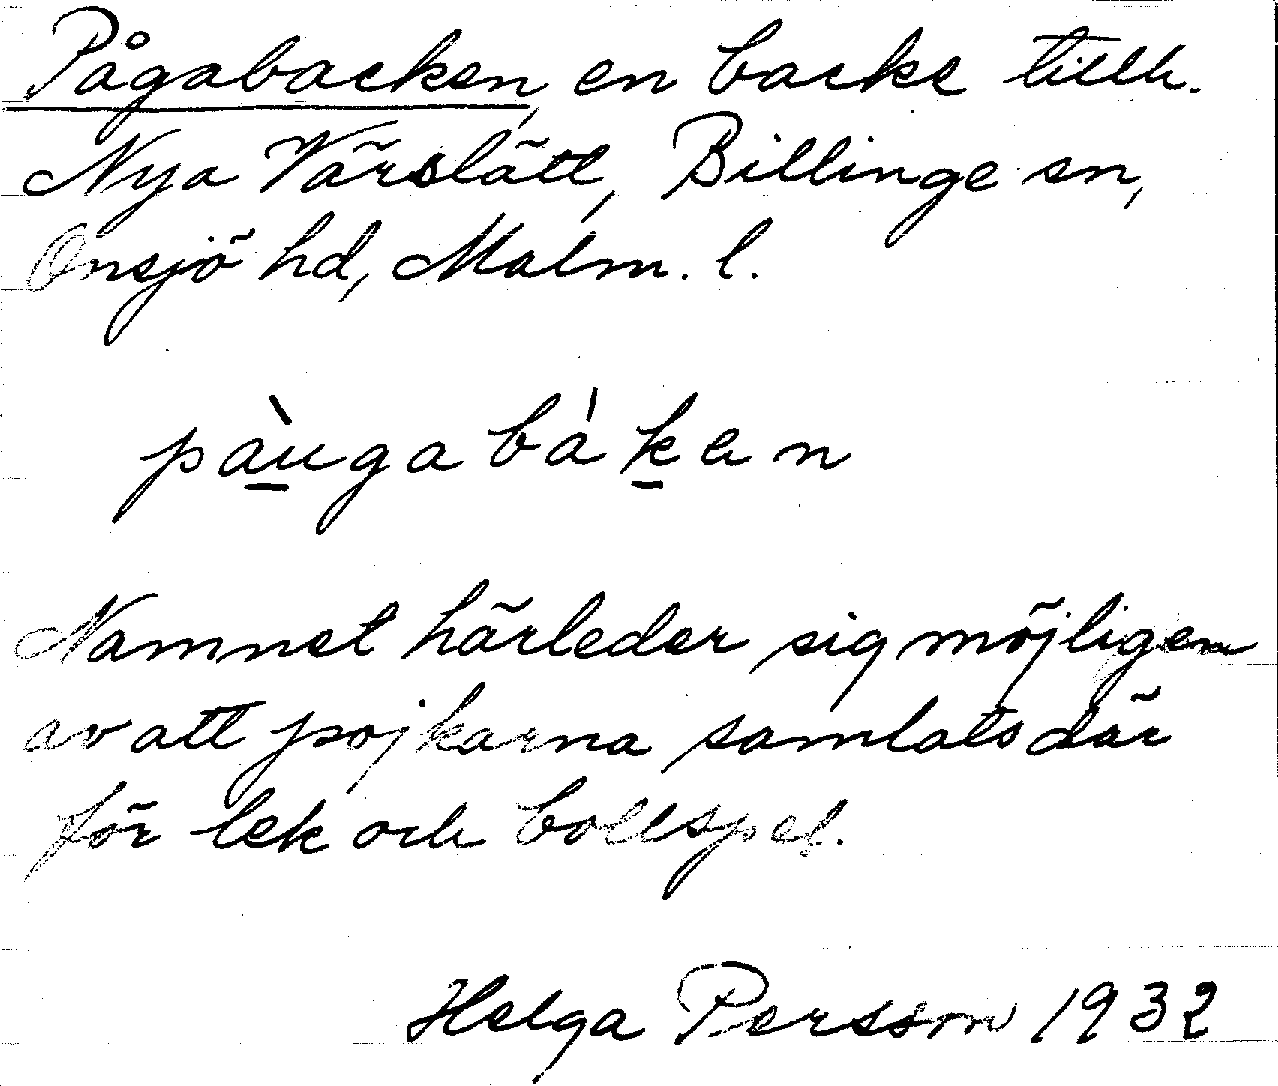 Pågabacken, en backe tillh.
Nya Värslätt, Billinge sn,
Onsjö hd, Malm. l.
pàugabàken
Namnet härleder sig möjligen
av att pojkarna samlats där
för lek och bollspel.
Helga Persson 1932